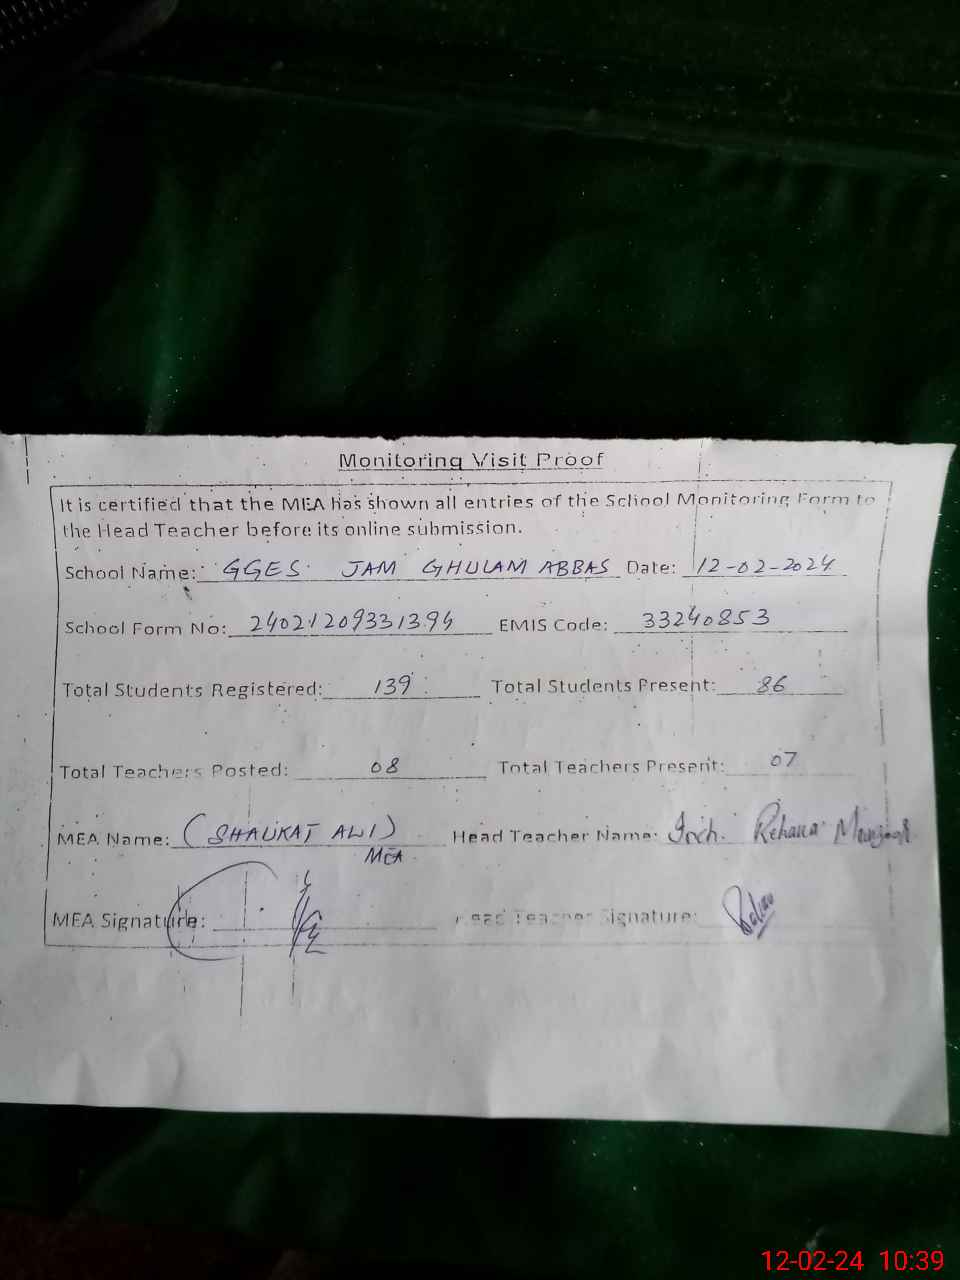 Monitoring Visit Proof
It is certified that the MEA has shown all entries of the School Monitoring Form to
the Head Teacher before its online submission.
School Name: GGES JAM GHULAM ABBAS Date: 12-02-2024
School Form No: 24021209331394 EMIS Code: 33240853
Total Students Registered: 139 Total Students Present: 86
Total Teachers Posted: 08 Total Teachers Present: 07
MEA Name: (SHAUKAT ALI) Head Teacher Name: Rehana
MEA
MEA Signature: Head Teacher Signature:
12-02-24 10:39